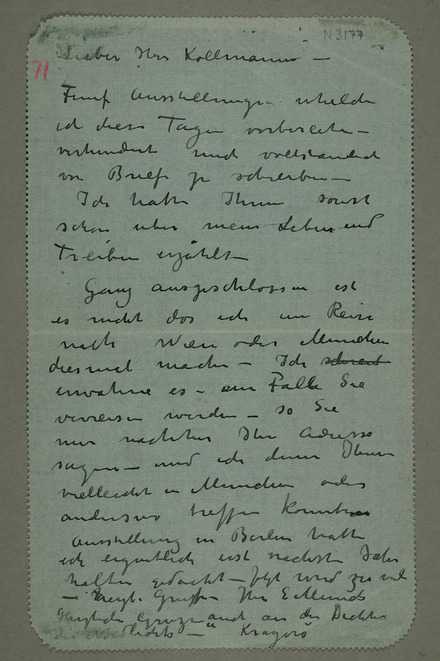 N 3177
71
Lieber Herr Kollmann –
Fünf Ausstellungen welche
ich diese Tagen vorbereite –
verhindert mich vollstandich
von Briefe zu schreiben –
Ich hatte Ihnen sonst
schon uber mein Leben und
Treiben erzählt –
Ganz ausgeschlossen ist
es nicht das ich ein Reise
nach Wien oder Munchen
diesmal mache – Ich schreib
erwahne es – im Falle Sie
verreisen werden – so Sie
mir nachher Ihr Adresse
sagen – und ich denn Ihnen
vielleicht in Munchen oder
anderswo treffen konnte
Ausstellung in Berlin hatte
ich eigentlich erst nachste Jahr
halten gedacht – Jetzt wird zu viel
– Herzl. Gruss Ihr E. Munch
Herzliche Grüsse auch an der Dichter
Kragerö